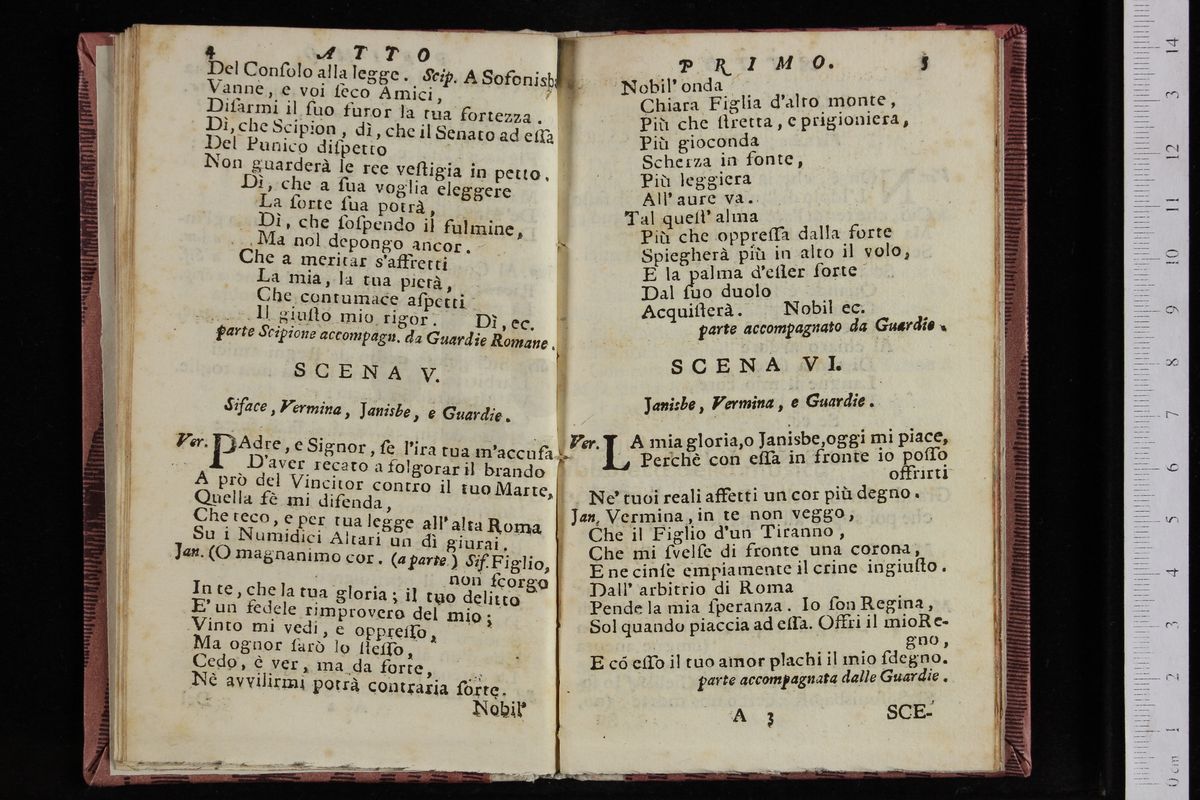 4 ATTO
Del Conſolo alla legge. Scip. A Sofonisba
Vanne, e voi ſeco Amici,
Diſarmi il ſuo furor la tua fortezza.
Dì, che Scipion, dì, che il Senato ad eſſa
Del Punico diſpetto
Non guarderà le ree veſtigia in petto.
Dì, che a ſua voglia eleggere
La ſorte ſua potrà,
Dì, che ſoſpendo il fulmine,
Ma nol depongo ancor.
Che a meritar s'affretti
La mia, la tua pietà,
Che contumace aſpetti
Il giuſto mio rigor. Dì, ec.
parte Scipione accompagn. da Guardie Romane.
SCENA V.
Siface, Vermina, Janisbe, e Guardie.
Ver. PAdre, e Signor, ſe l'ira tua m'accuſa
D'aver recato a folgorar il brando
A prò del Vincitor contro il tuo Marte,
Quella fè mi difenda,
Che teco, e per tua legge all'alta Roma
Su i Numidici Altari un dì giurai.
Jan. (O magnanimo cor. (a parte) Sif. Figlio,
non ſcorgo
In te, che la tua gloria; il tuo delitto
E' un fedele rimprovero del mio;
Vinto mi vedi, e oppreſſo,
Ma ognor ſarò lo ſteſſo,
Cedo, è ver, ma da forte,
Nè avvilirmi potrà contraria ſorte.
Nobil'
PRIMO. 5
Nobil' onda
Chiara Figlia d'alto monte,
Più che ſtretta, e prigioniera,
Più gioconda
Scherza in fonte,
Più leggiera
All' aure va.
Tal queſt' alma
Più che oppreſſa dalla ſorte
Spiegherà più in alto il volo,
E la palma d'eſſer forte
Dal ſuo duolo
Acquiſterà. Nobil ec.
parte accompagnato da Guardie.
SCENA VI.
Janisbe, Vermina, e Guardie.
Ver. LA mia gloria, o Janisbe, oggi mi piace,
Perchè con eſſa in fronte io poſſo
offrirti
Ne' tuoi reali affetti un cor più degno.
Jan. Vermina, in te non veggo,
Che il Figlio d'un Tiranno,
Che mi ſvelſe di fronte una corona,
E ne cinſe empiamente il crine ingiuſto.
Dall' arbitrio di Roma
Pende la mia ſperanza. Io ſon Regina,
Sol quando piaccia ad eſſa. Offri il mio Re-
gno,
E có eſſo il tuo amor plachi il mio ſdegno.
parte accompagnata dalle Guardie.
A 3 SCE-
0 cm 1 2 3 4 5 6 7 8 9 10 11 12 13 14